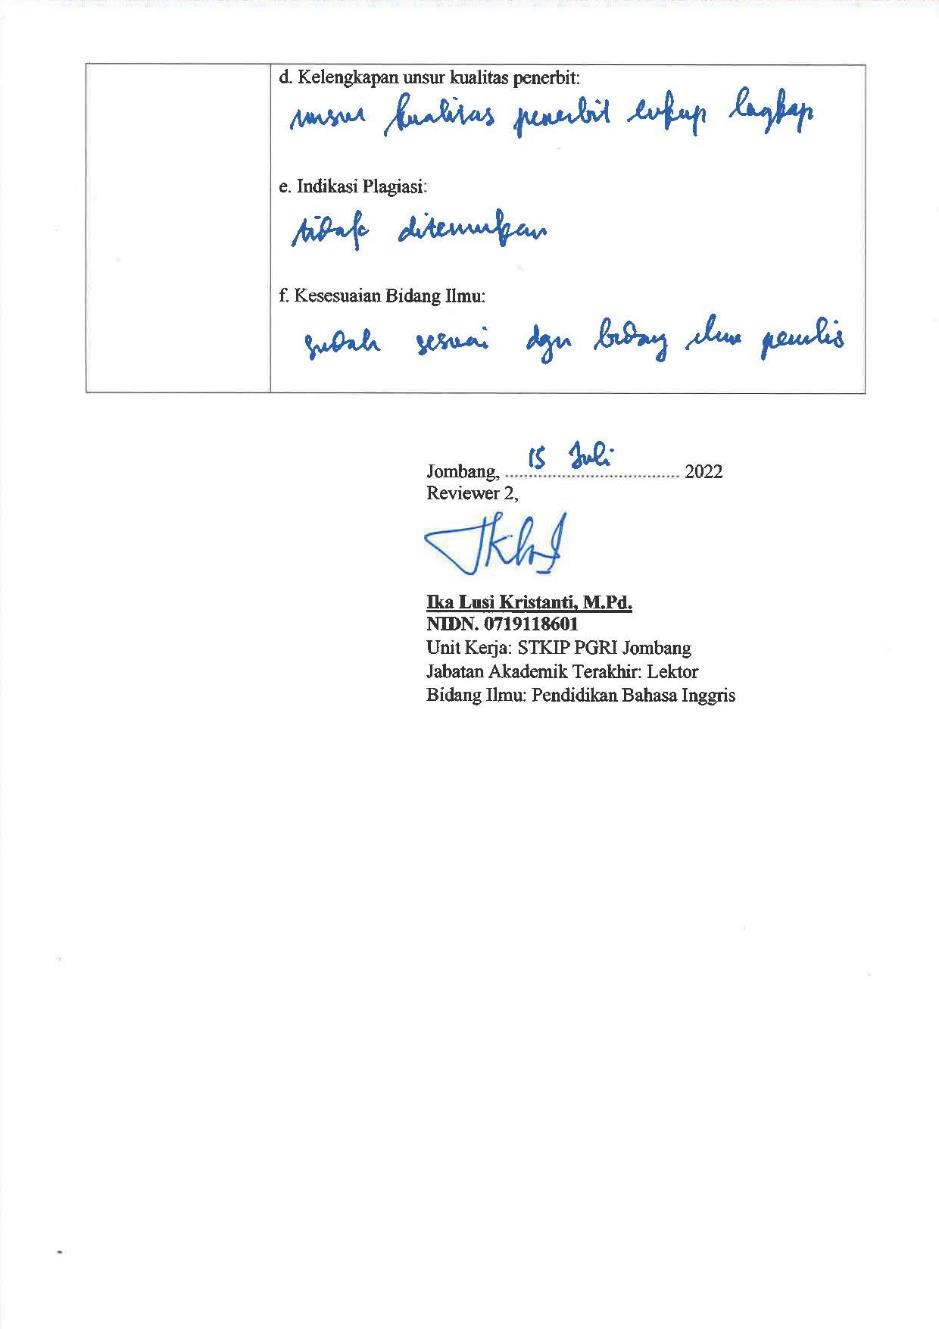 d. Kelengkapan unsur kualitas penerbit:
unsur kualitas penerbit cukup lengkap
e. Indikasi Plagiasi:
tidak ditemukan
f. Kesesuaian Bidang Ilmu:
sudah sesuai dgn bidang ilmu penulis
Jombang, 15 Juli 2022
Reviewer 2,
Ika Lusi Kristanti, M.Pd.
NIDN. 0719118601
Unit Kerja: STKIP PGRI Jombang
Jabatan Akademik Terakhir: Lektor
Bidang Ilmu: Pendidikan Bahasa Inggris